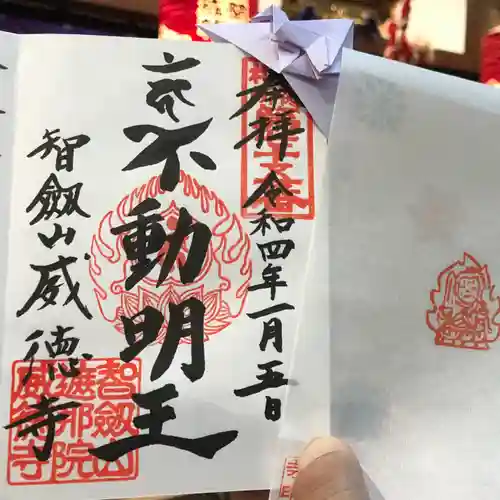 奉拝
令和四年一月五日
不動明王
智劔山威徳寺
智劔山
遮那院
威徳寺